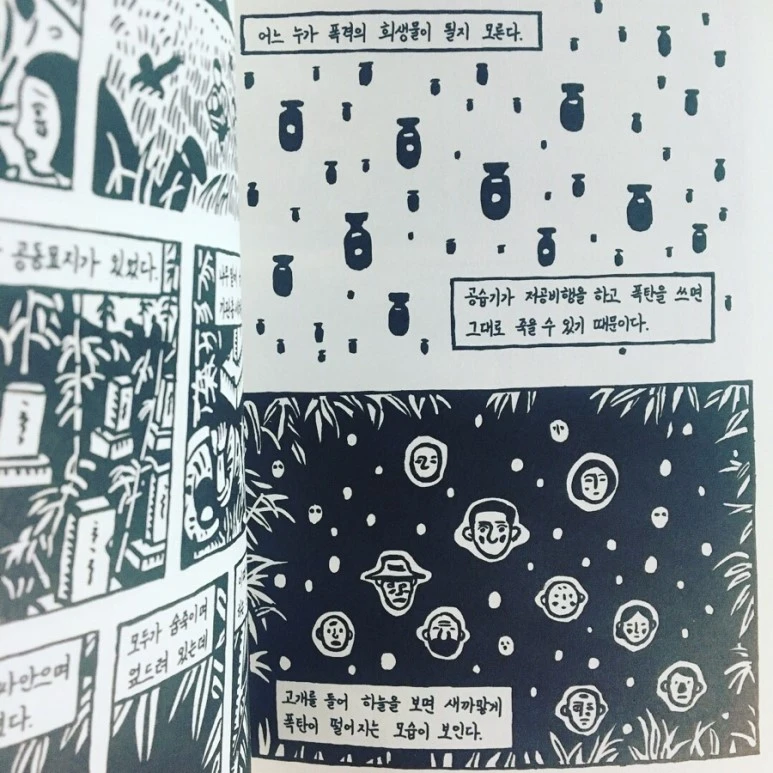 공동묘지가 있었다.
모두가 숨죽이며
엎드려 있는데
어느 누가 폭격의 희생물이 될지 모른다.
공습기가 저공비행을 하고 폭탄을 쓰면
그대로 죽을 수 있기 때문이다.
고개를 들어 하늘을 보면 새까맣게
폭탄이 떨어지는 모습이 보인다.